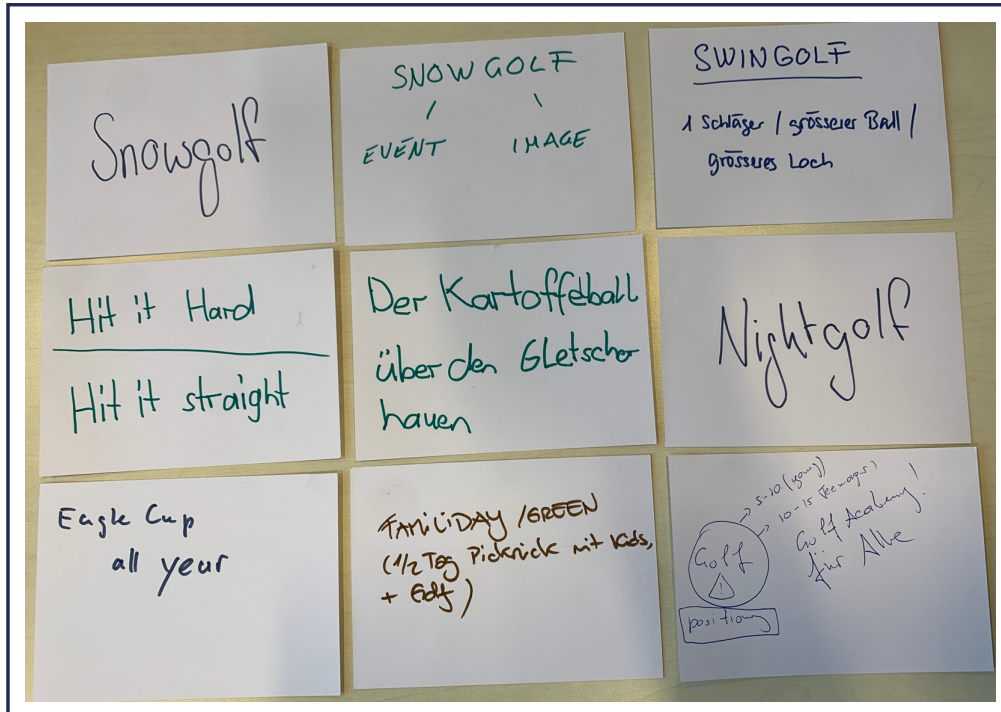 Snowgolf
SNOWGOLF
EVENT IMAGE
SWINGOLF
1 Schläger / grösserer Ball /
grösseres Loch
Hit it Hard
Hit it straight
Der Kartoffelball
über den Gletscher
hauen
Nightgolf
Eagle Cup
all year
FAMILIDAY / GREEN
(1/2 Tag Picknick mit Kids,
+ Golf)
5-10 (young)
10-15 Teenager)
Golf
!
positiong
Golf Academy!
für Alle